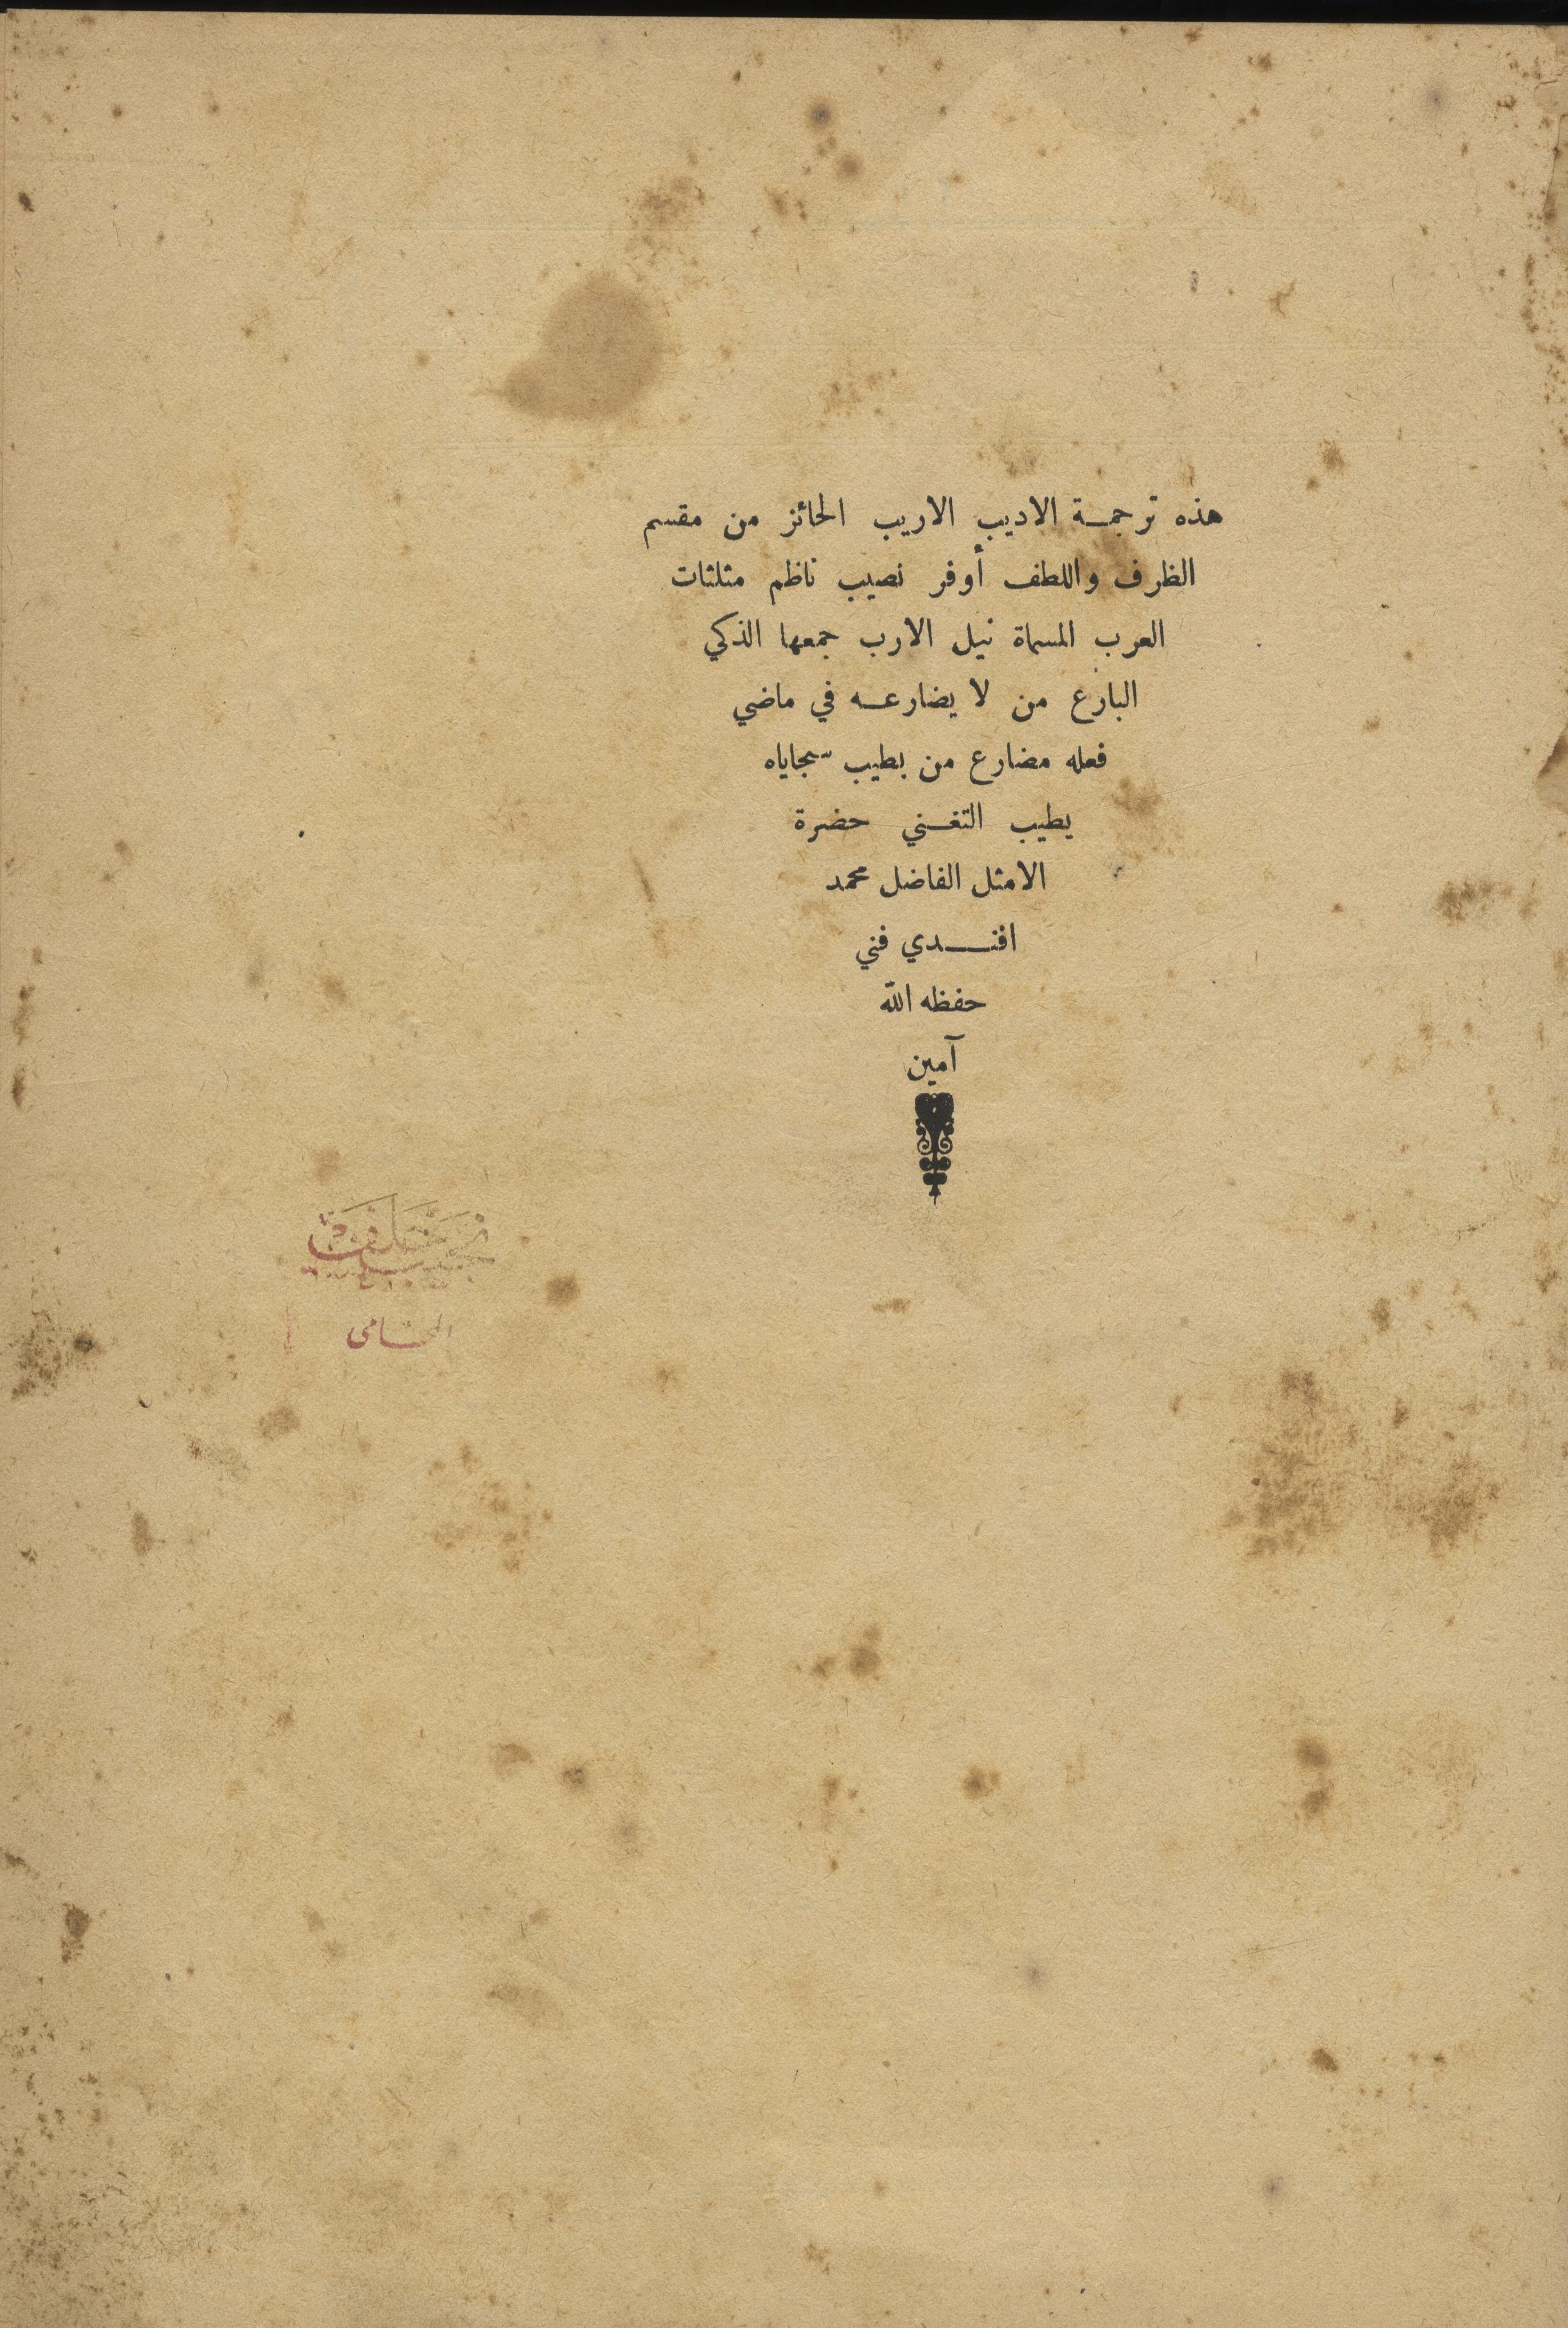 هذه ترجمة الاديب الاريب الحائز من مقسم
الظرف واللطف أوفر نصيب ناظم مثلثات
العرب المسماة نيل الارب جمعها الذكي
البارع من لا يضارعه في ماضي
فعله مضارع من بطيب سجاياه
يطيب التغني حضرة
الامثل الفاضل محمد
افندي فني
حفظه الله
آمين
نجيب خلف
المحامى